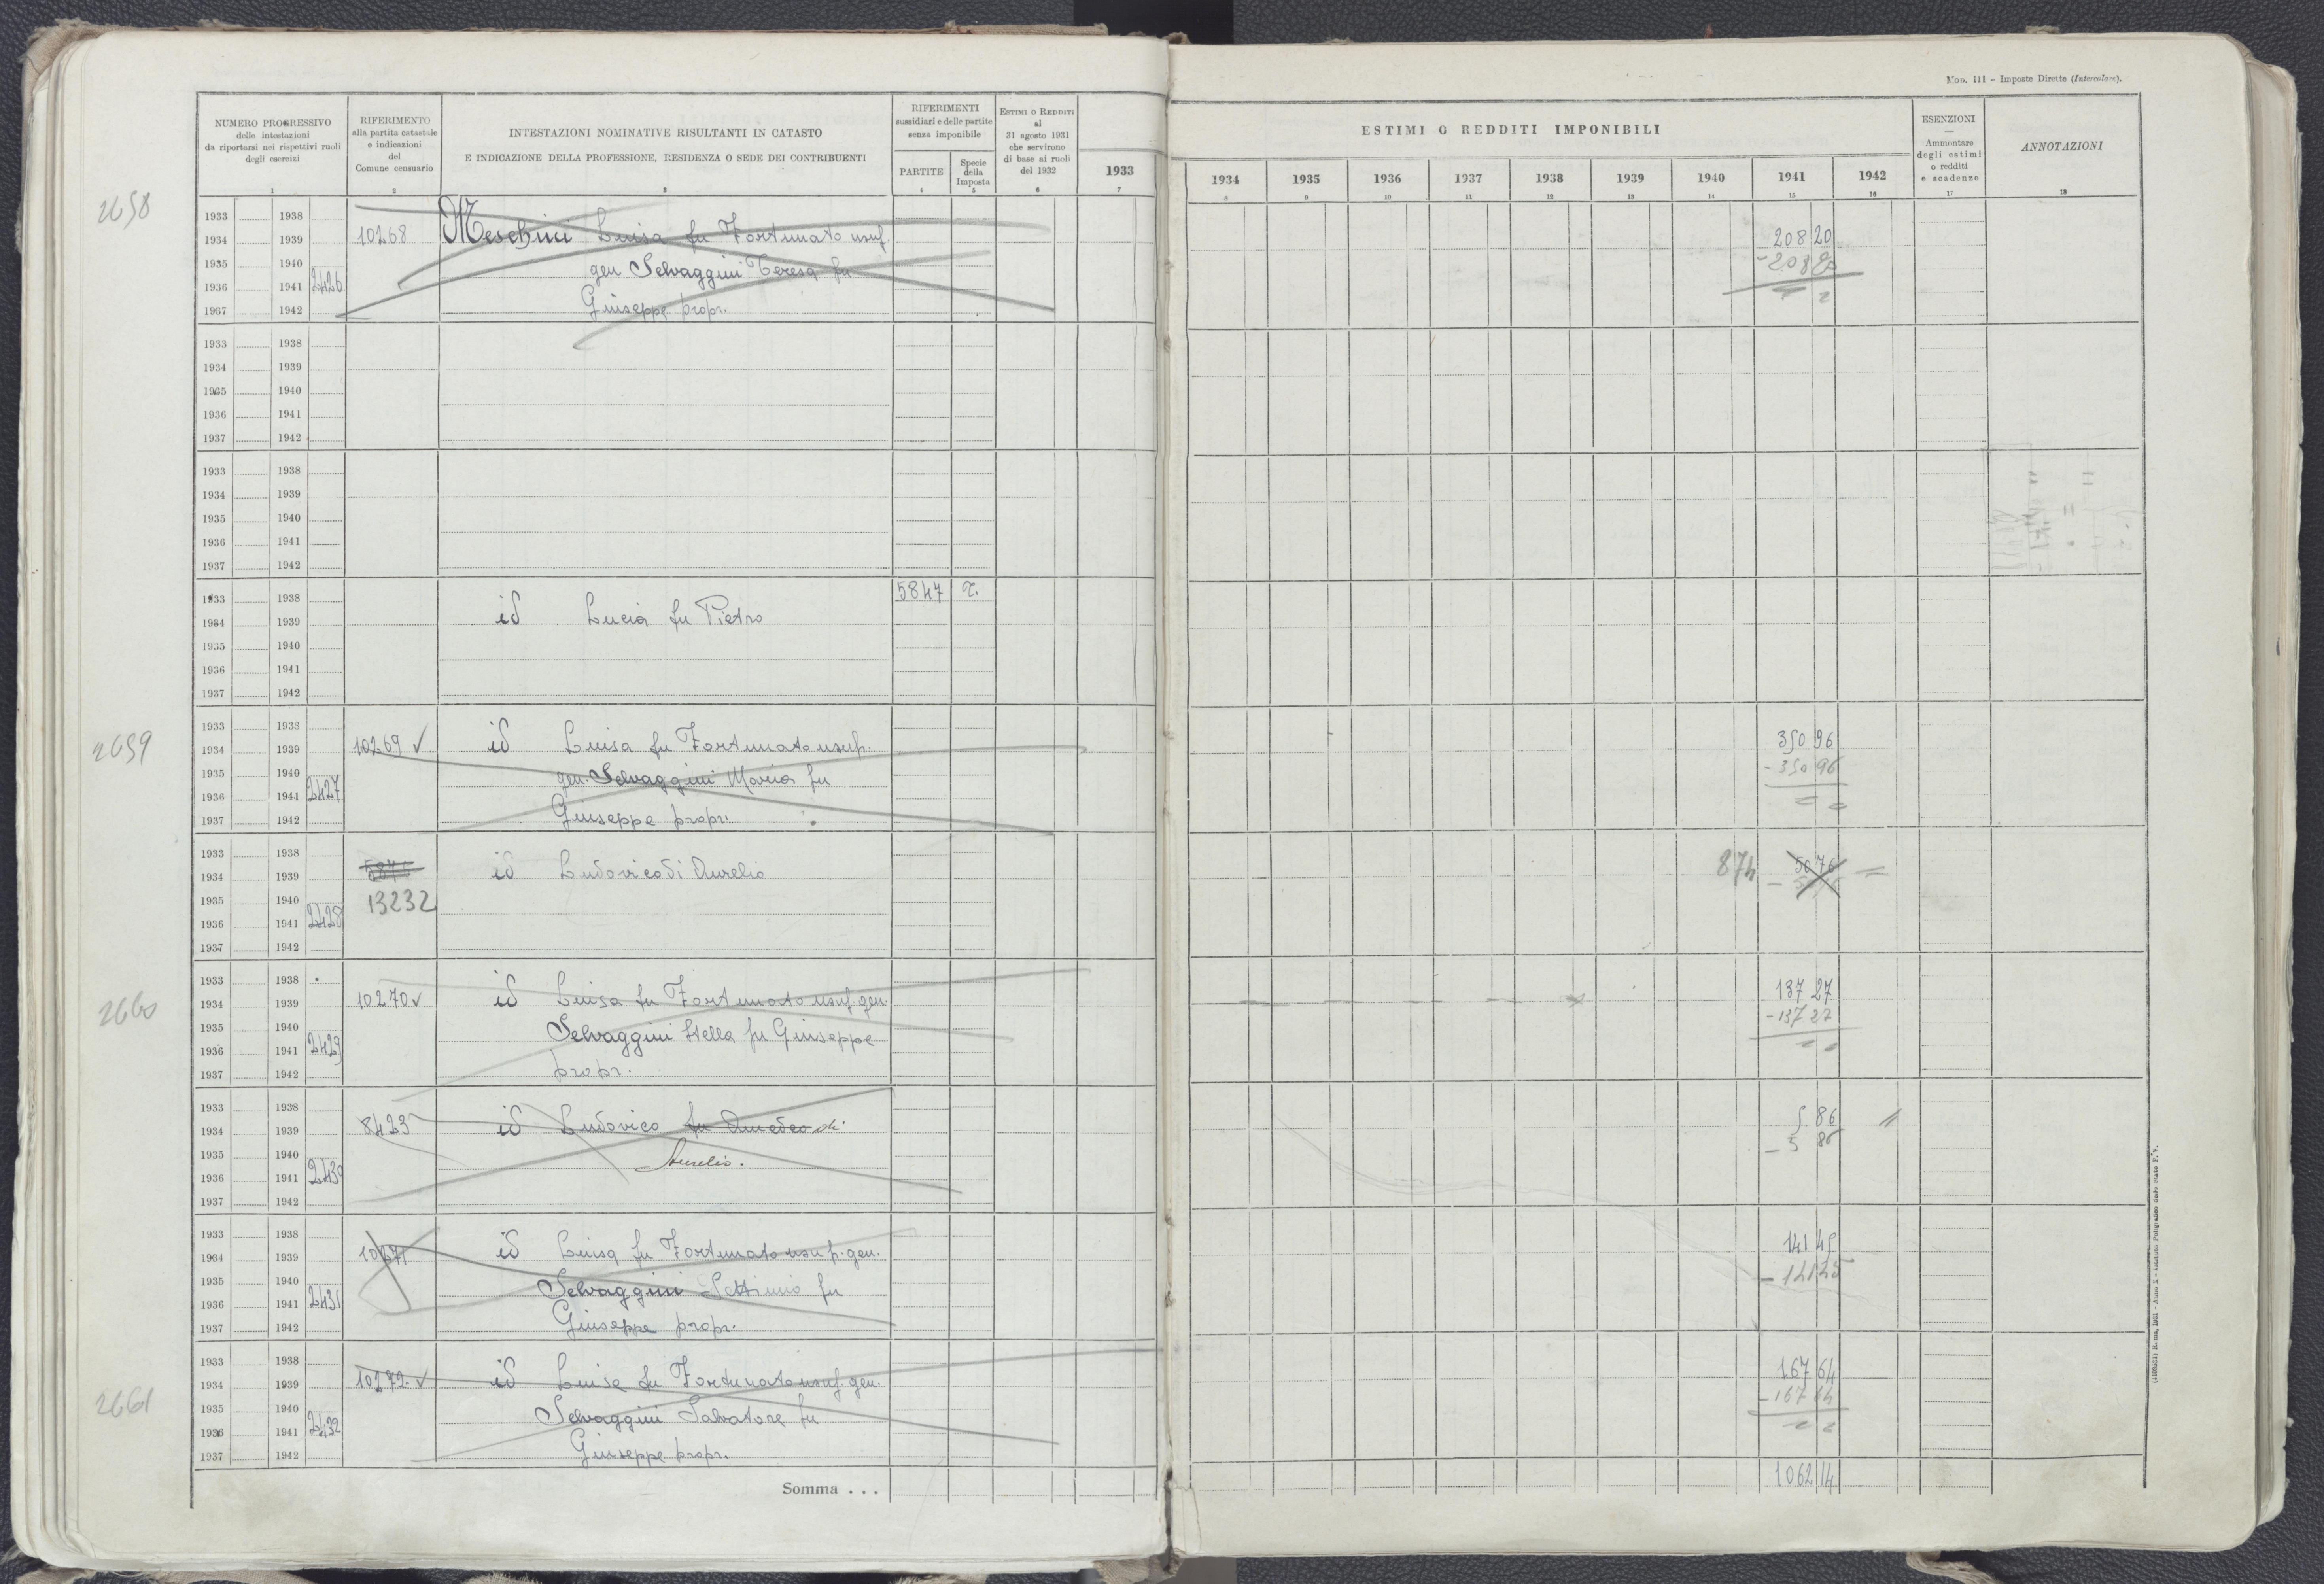 Mod. III - Imposte Dirette (Intercolare).
NUMERO PROGRESSIVO
delle intestazioni
da riportarsi nei rispettivi ruoli
degli esercizi
1
RIFERIMENTO
alla partita catastale
e indicazioni
del
Comune censuario
2
INTESTAZIONI NOMINATIVE RISULTANTI IN CATASTO
E INDICAZIONE DELLA PROFESSIONE, RESIDENZA O SEDE DEI CONTRIBUENTI
3
RIFERIMENTI
sussidiari e delle partite
senza imponibile
PARTITE
4
Specie
della
Imposta
5
ESTIMI O REDDITI
al
31 agosto 1931
che servirono
di base ai ruoli
del 1932
6
1933
7
ESTIMI O REDDITI IMPONIBILI
1934 1935 1936 1937 1938 1939 1940 1941 1942
8 9 10 11 12 13 14 15 16
ESENZIONI
Ammontare
degli estimi
o redditi
e scadenze
17
ANNOTAZIONI
18
2658
1933 1938
1934 1939 10268 Meschini Luisa fu Fortunato usuf. 208 20
1935 1940 gen Selvaggini Teresa fu - 208 20
1936 1941 2426
1937 1942 Giuseppe propr.
1933 1938
1934 1939
1935 1940
1936 1941
1937 1942
1933 1938
1934 1939
1935 1940
1936 1941
1937 1942
1933 1938 5847
1934 1939 id Lucia fu Pietro
1935 1940
1936 1941
1937 1942
2659
1933 1938
1934 1939 10269 ✓ id Luisa fu Fortunato usuf. 350 96
1935 1940 gen. Selvaggini Maria fu - 350 96
1936 1941 2427
1937 1942 Giuseppe propr.
1933 1938
1934 1939 id Ludovico di Aurelio 874 50 76
1935 1940 13232
1936 1941 2428
1937 1942
2660
1933 1938
1934 1939 10270 ✓ id Luisa fu Fortunato usuf. gen. 137 27
1935 1940 Selvaggini Stella fu Giuseppe - 137 27
1936 1941 2429
1937 1942 propr.
1933 1938
1934 1939 8423 id Ludovico fu Amedeo di 5 86
1935 1940 Aurelio. - 5 86
1936 1941 2430
1937 1942
1933 1938
1934 1939 10271 id Luisa fu Fortunato usuf. gen. 141 45
1935 1940 Selvaggini Settimio fu - 141 45
1936 1941 2431
1937 1942 Giuseppe propr.
2661
1933 1938
1934 1939 10272 ✓ id Luisa fu Fortunato usuf. gen. 167 64
1935 1940 Selvaggini Salvatore fu - 167 64
1936 1941 2432
1937 1942 Giuseppe propr.
Somma . . . 1062 14